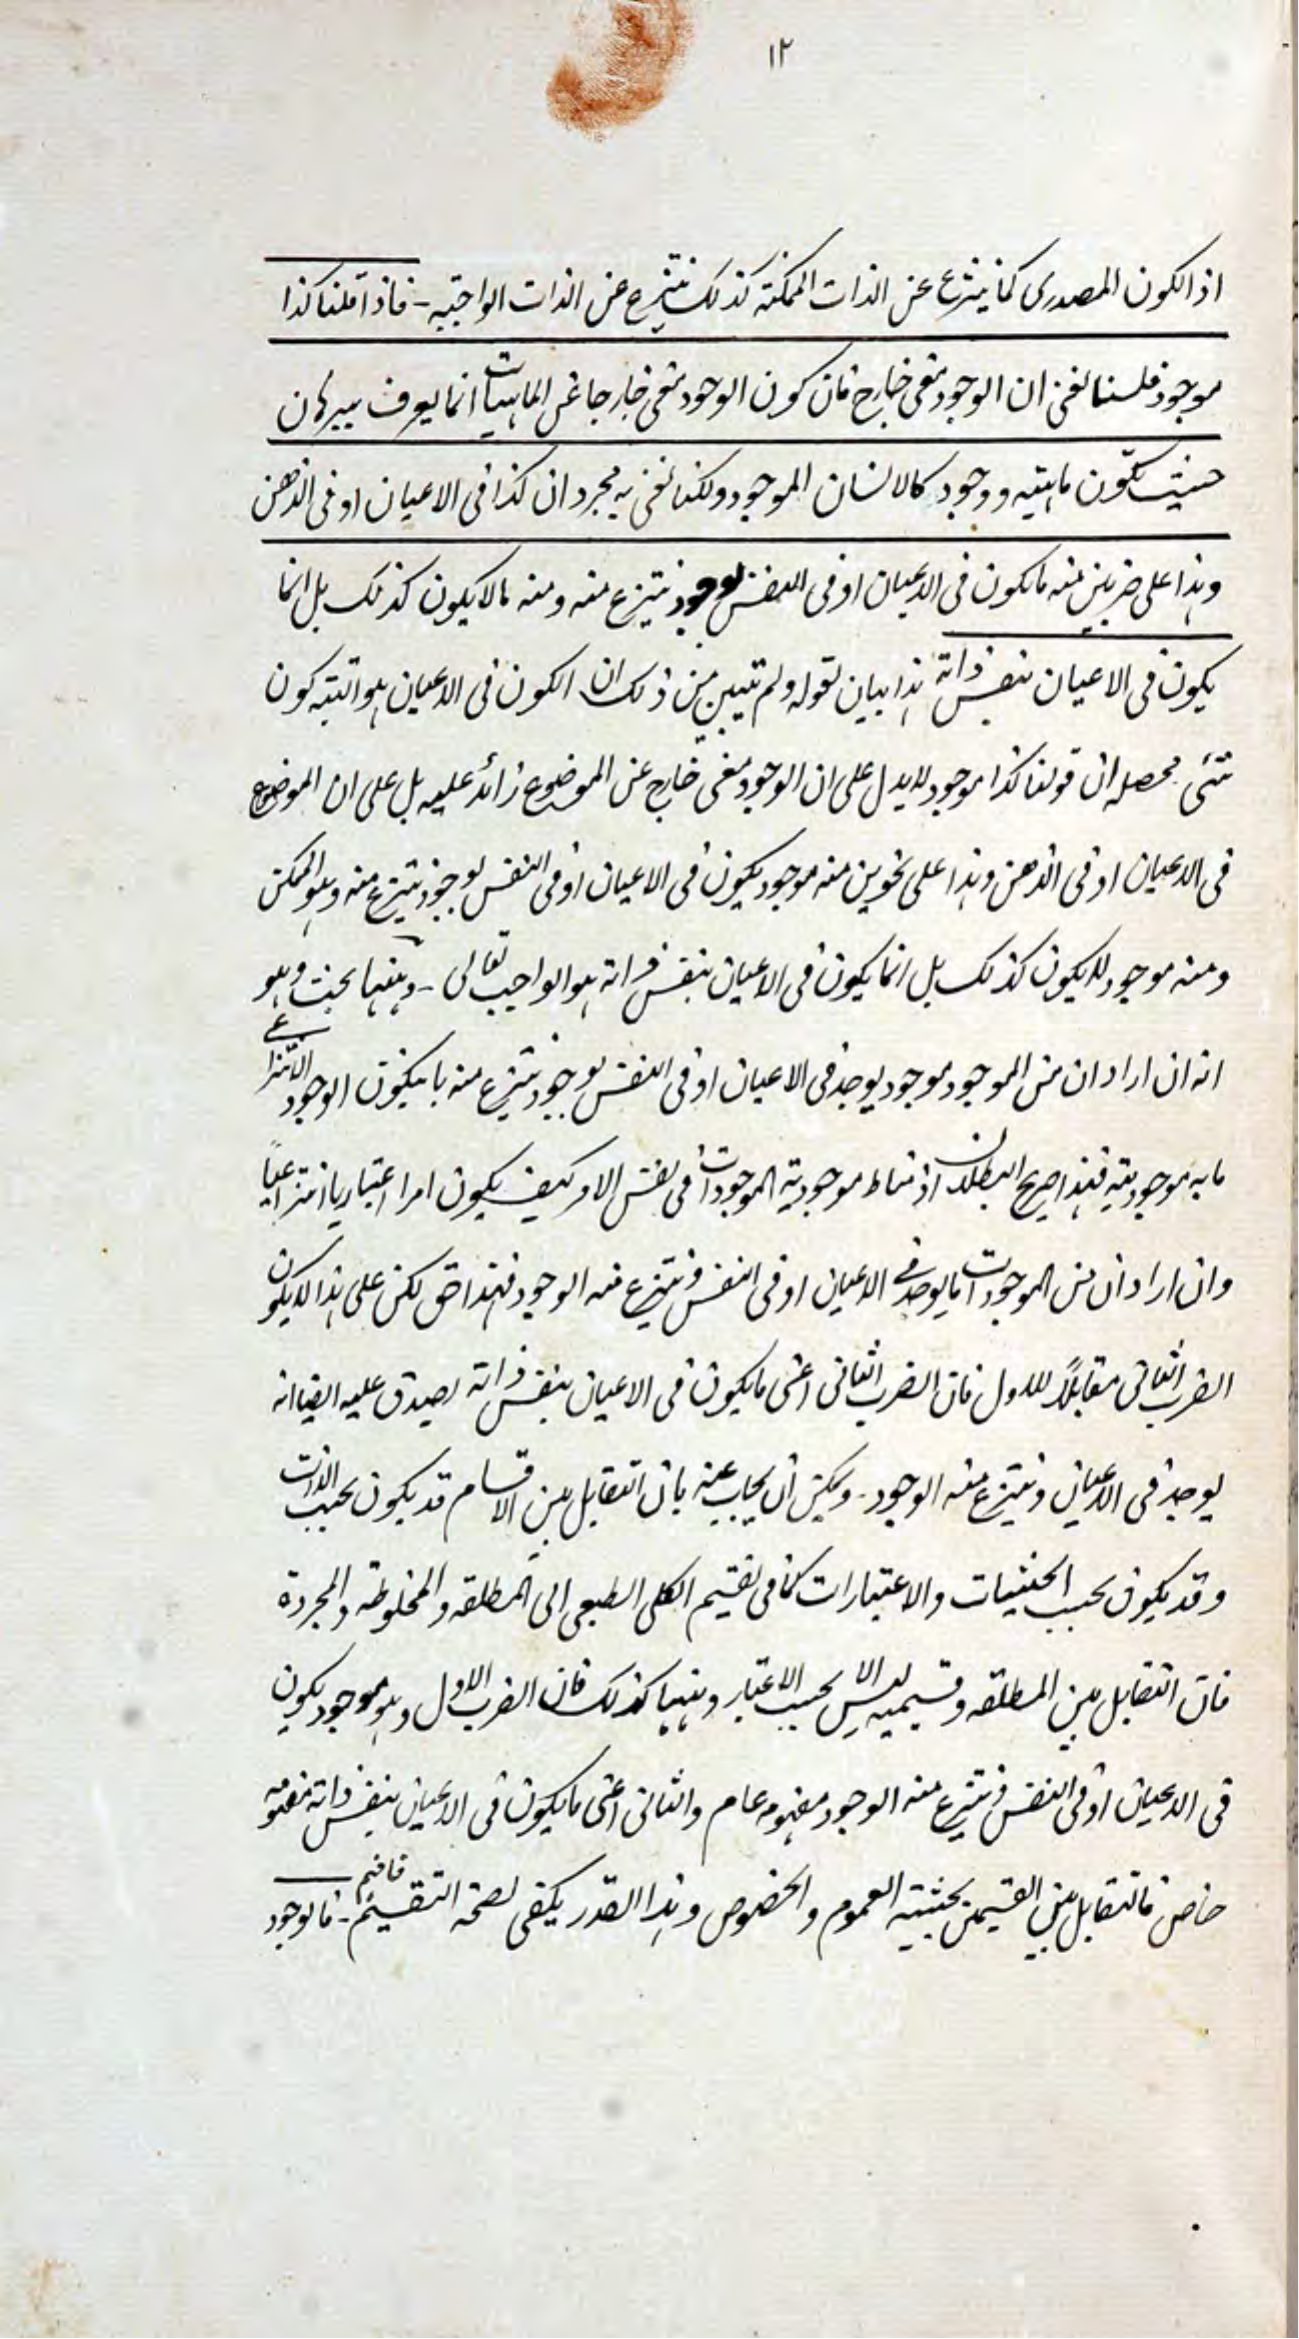 ١٢
اذ الكون المصدرى كما ينتزع عن الذات الممكنة كذلك ينتزع عن الذات الواجبية - فاذا قلنا كذا
موجود فلسنا نعنى ان الوجود معنى خارج فان كون الوجود معنى خارجا عن الماهيات انما يعرف ببرهان
حيث يكون ماهية ووجود كالانسان الموجود ولكنا نعنى به مجرد ان كذا فى الاعيان او فى الذهن
وهذا على ضربين منه ما يكون فى الاعيان او فى النفس بوجود ينتزع منه ومنه ما لا يكون كذلك بل انما
يكون فى الاعيان بنفس ذاته هذا بيان لقوله ولم تبين من ذلك ان الكون فى الاعيان هو البتة كون
شئى محصله ان قولنا كذا موجود لا يدل على ان الوجود معنى خارج عن الموضوع زائد عليه بل على ان الموضوع
فى الاعيان او فى الذهن وهذا على نحوين منه موجود يكون فى الاعيان او فى النفس بوجود ينتزع منه وهو الممكن
ومنه موجود لا يكون كذلك بل انما يكون فى الاعيان بنفس ذاته هو الواجب تعالى - وههنا بحث وهو
انه ان اراد ان من الموجود موجود يوجد فى الاعيان او فى النفس بوجود ينتزع منه بان يكون الوجود الانتزاعى
ما به موجوديته فهذا صريح البطلان اذ مناط موجودية الموجودات فى نفس الامر كيف يكون امرا اعتباريا انتزاعياً
وان اراد ان من الموجودات ما يوجد فى الاعيان او فى النفس وينتزع منه الوجود فهذا حق لكن على هذا لا يكون
الضرب الثانى مقابلاً للاول فان الضرب الثانى اعنى ما يكون فى الاعيان بنفس ذاته يصدق عليه ايضا انه
يوجد فى الاعيان وينتزع منه الوجود - ويمكن ان يجاب عنه بان التقابل بين الاقسام قد يكون بحسب الذات
وقد يكون بحسب الحيثيات والاعتبارات كما فى تقسيم الكلى الطبعى الى المطلقه والمخلوطة والمجردة
فان التقابل بين المطلقه وقسيميه ليس الا بحسب الاعتبار وههنا كذلك فان الضرب الاول وهو موجود يكون
فى الاعيان او فى النفس وينتزع منه الوجود مفهومه عام والثانى اعنى ما يكون فى الاعيان بنفس ذاته مفهومه
خاص فالتقابل بين القسيمين بحيثية العموم والخصوص وهذا القدر يكفى لصحة التقسيم فافهم - فالوجود